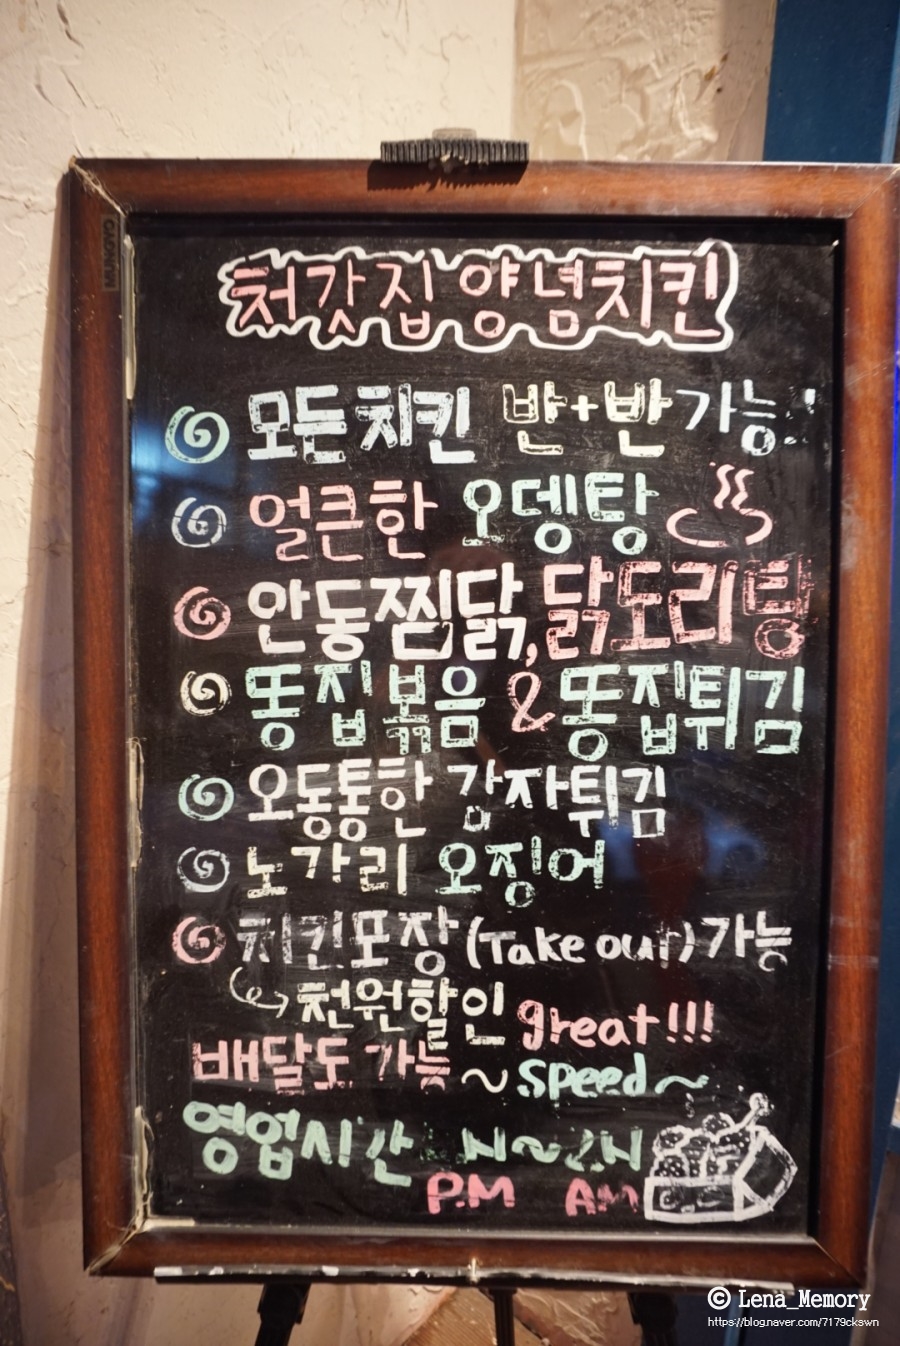 MUNGYO
처갓집 양념치킨
모든치킨 반+반 가능
얼큰한 오뎅탕
안동찜닭, 닭도리탕
똥집볶음 & 똥집튀김
오동통한 감자튀김
노가리 오징어
치킨포장 (Take out) 가능
천원할인 great!!!
배달도 가능 ~ speed ~
영업시간 시~2시
P.M AM
© Lena_Memory
https://blog.naver.com/7179ckswn